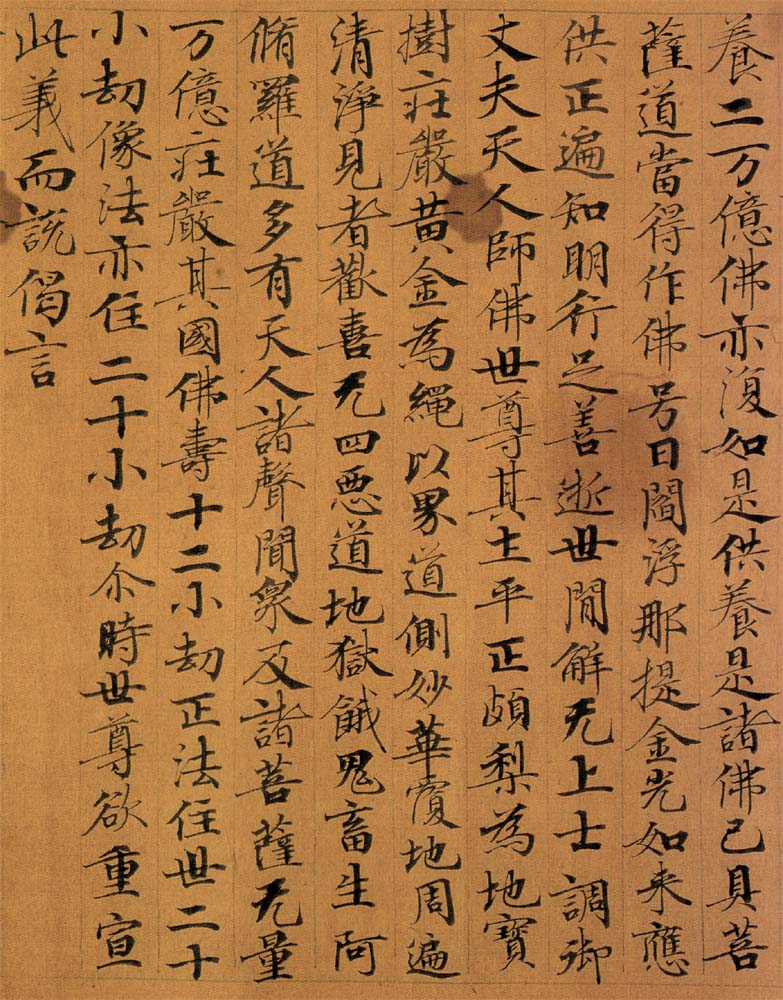 養二万億佛亦復如是供養是諸佛已具菩
薩道當得作佛号曰閻浮那提金光如来應
供正遍知明行足善逝世間解无上士調御
丈夫天人師佛世尊其土平正頗梨為地寶
樹莊嚴黄金為繩以界道側妙華覆地周遍
清淨見者歡喜无四惡道地獄餓鬼畜生阿
脩羅道多有天人諸聲聞衆及諸菩薩无量
万億莊嚴其國佛壽十二小劫正法住世二十
小劫像法亦住二十小劫尒時世尊欲重宣
此義而說偈言